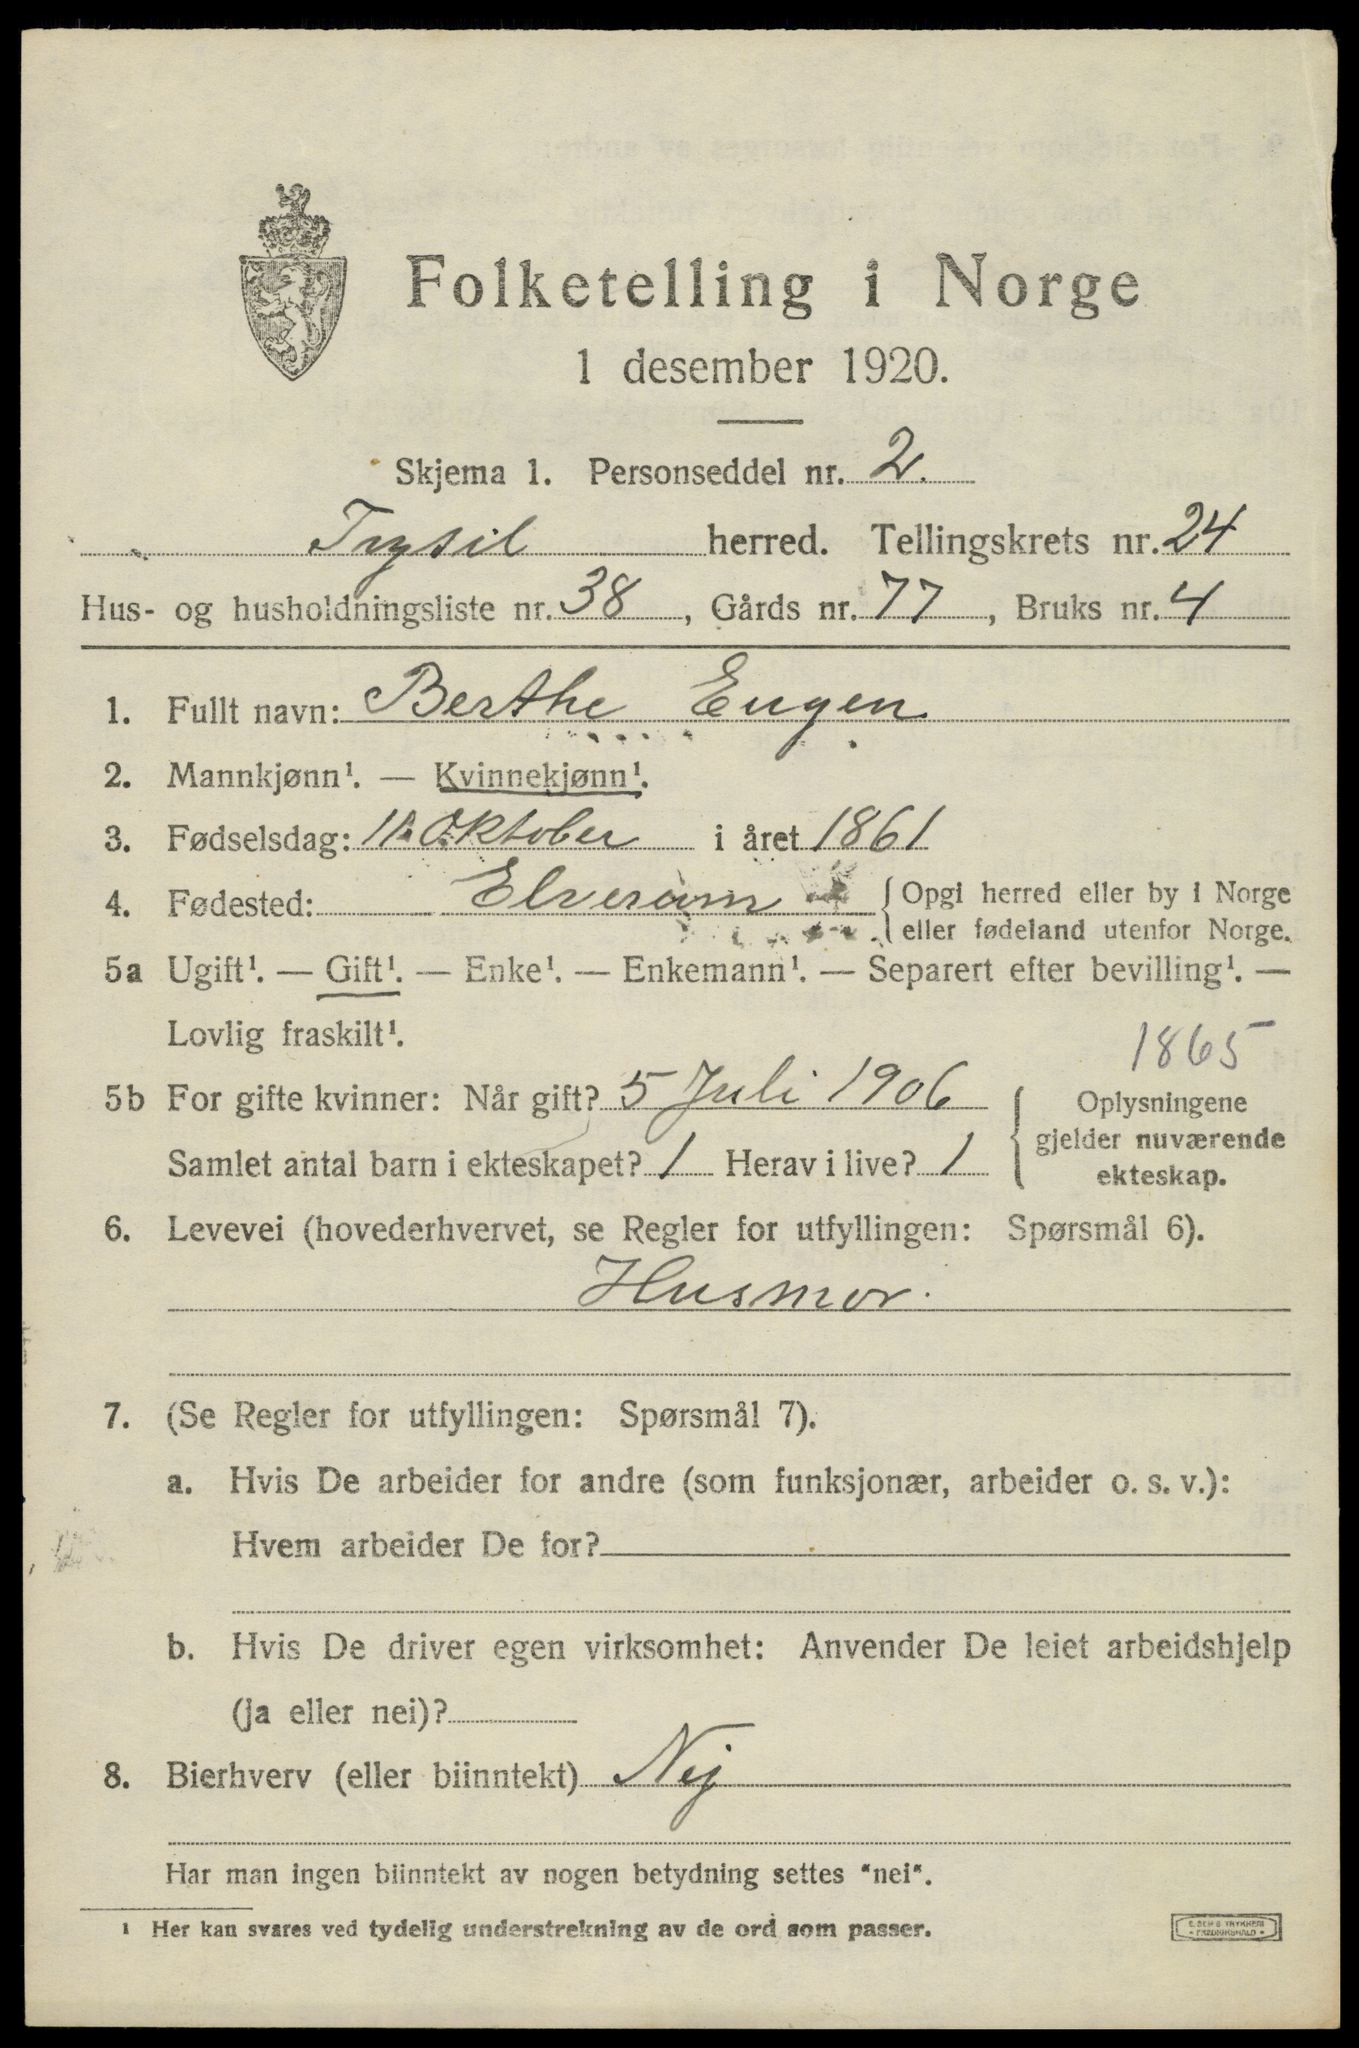 Folketelling i Norge
1 desember 1920.
Skjema 1. Personseddel nr. 2.
Trysil herred. Tellingskrets nr. 24
Hus- og husholdningsliste nr. 38, Gårds nr. 77, Bruks nr. 4
1. Fullt navn: Berthe Eugen
2. Mannkjønn¹. — Kvinnekjønn¹.
3. Fødselsdag: 11 Oktober i året 1861
4. Fødested: Elverum { Opgi herred eller by i Norge
eller fødeland utenfor Norge.
5a Ugift¹. — Gift¹. — Enke¹. — Enkemann¹. — Separert efter bevilling¹. —
Lovlig fraskilt¹.
1865
5b For gifte kvinner: Når gift? 5 Juli 1906 { Oplysningene
gjelder nuværende
Samlet antal barn i ekteskapet? 1 Herav i live? 1 ekteskap.
6. Levevei (hovederhvervet, se Regler for utfyllingen: Spørsmål 6).
Husmor.
7. (Se Regler for utfyllingen: Spørsmål 7).
a. Hvis De arbeider for andre (som funksjonær, arbeider o. s. v.):
Hvem arbeider De for?
b. Hvis De driver egen virksomhet: Anvender De leiet arbeidshjelp
(ja eller nei)?
8. Bierhverv (eller biinntekt) Nej
Har man ingen biinntekt av nogen betydning settes "nei".
¹ Her kan svares ved tydelig understrekning av de ord som passer.